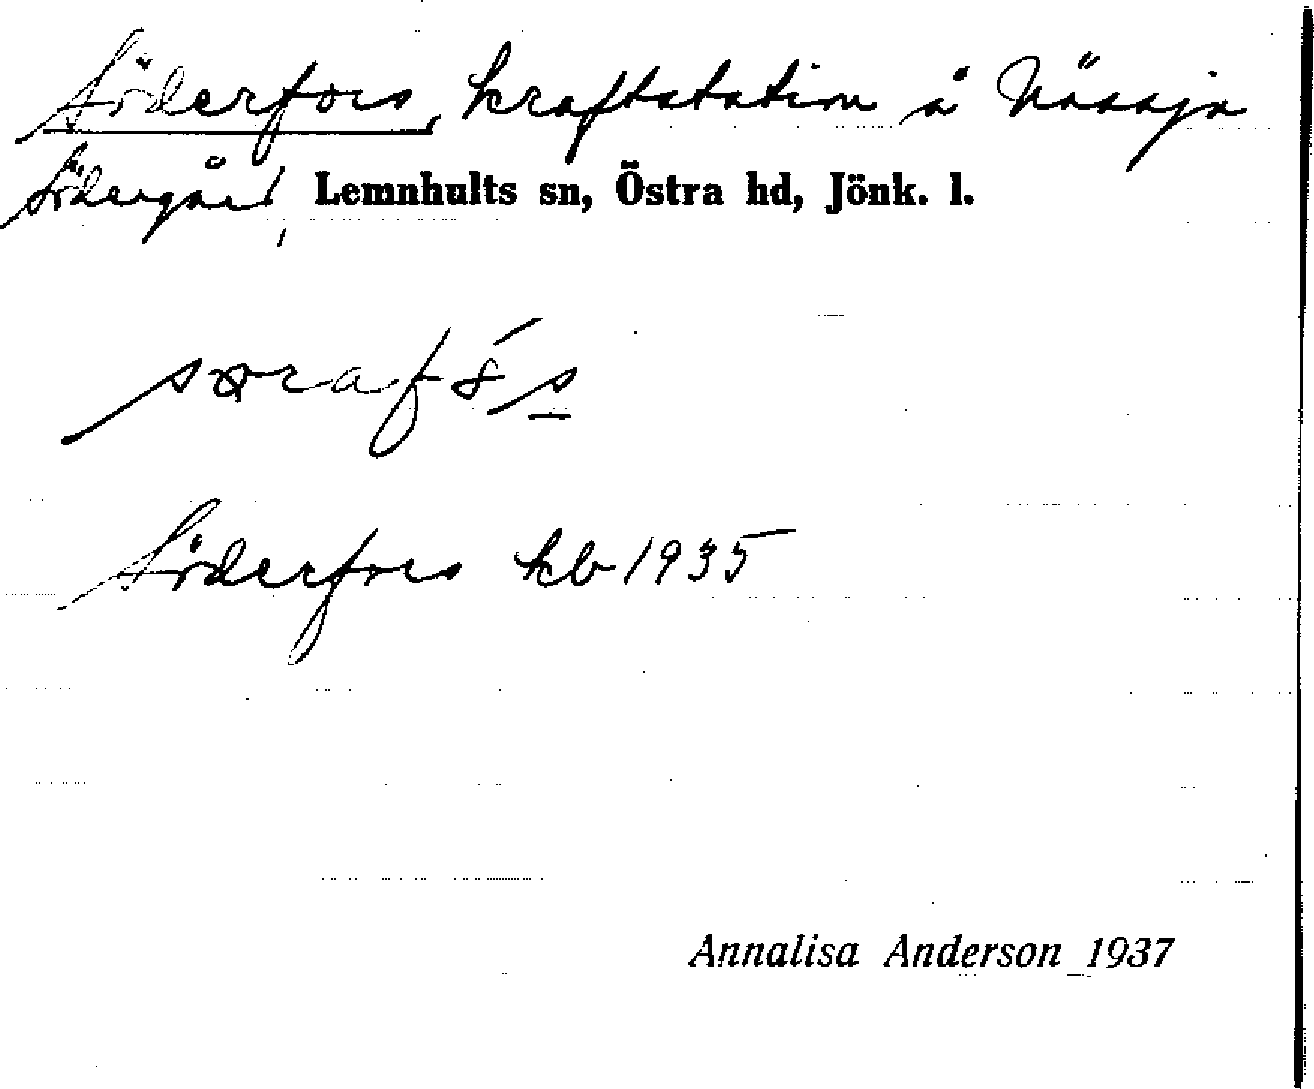 Söderfors, kraftstation å Nässja
Södergård, Lemnhults sn, Östra hd, Jönk. l.
Söderfors kb 1935
Annalisa Anderson 1937